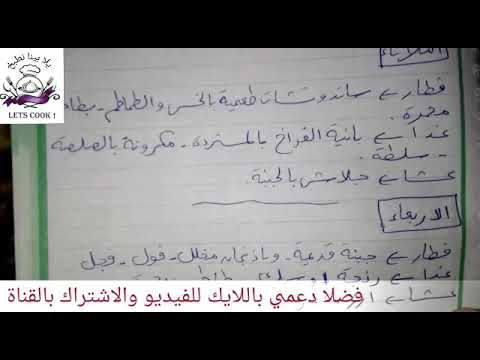 يلا بينا نطبخ
LETS COOK !
الثلاثاء
فطار ← ساندوتشات طعمية بالخس والطماطم - بطاطس
محمرة.
غدا ← بانية الفراخ بالمستردة - مكرونة بالصلصة
- سلطة.
عشا ← جلاش بالجبنة.
الاربعاء
فطار ← جبنة قديمة - وباذنجان مخلل - فول - فجل
غدا ←
عشا ←
فضلا دعمي باللايك للفيديو والاشتراك بالقناة